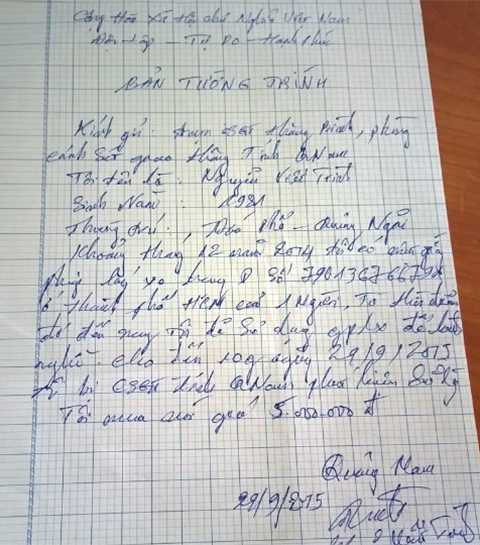 Cộng Hòa Xã Hội chủ Nghĩa Việt Nam
Độc lập – Tự Do – Hạnh Phúc
BẢN TƯỜNG TRÌNH
Kính gửi: trạm CSGT Thăng Bình, phòng
cảnh sát giao thông Tỉnh QNam
Tôi tên là: Nguyễn Viết Trình
Sinh Năm: 1981
Thường trú:, Phổ – Quảng Ngãi
Khoảng tháng 12 năm 2014 tôi có mua giấy
phép lái xe hạng D Số
ở Thành phố HCM của 1 Người, Từ thời điểm
đó đến nay Tôi đã sử dụng gplx để hành
nghề. cho đến 10g ngày 29/9/2015
bị CSGT tỉnh QNam phát hiện
Tôi mua với giá 5.000.000 đ
Quảng Nam
29/9/2015